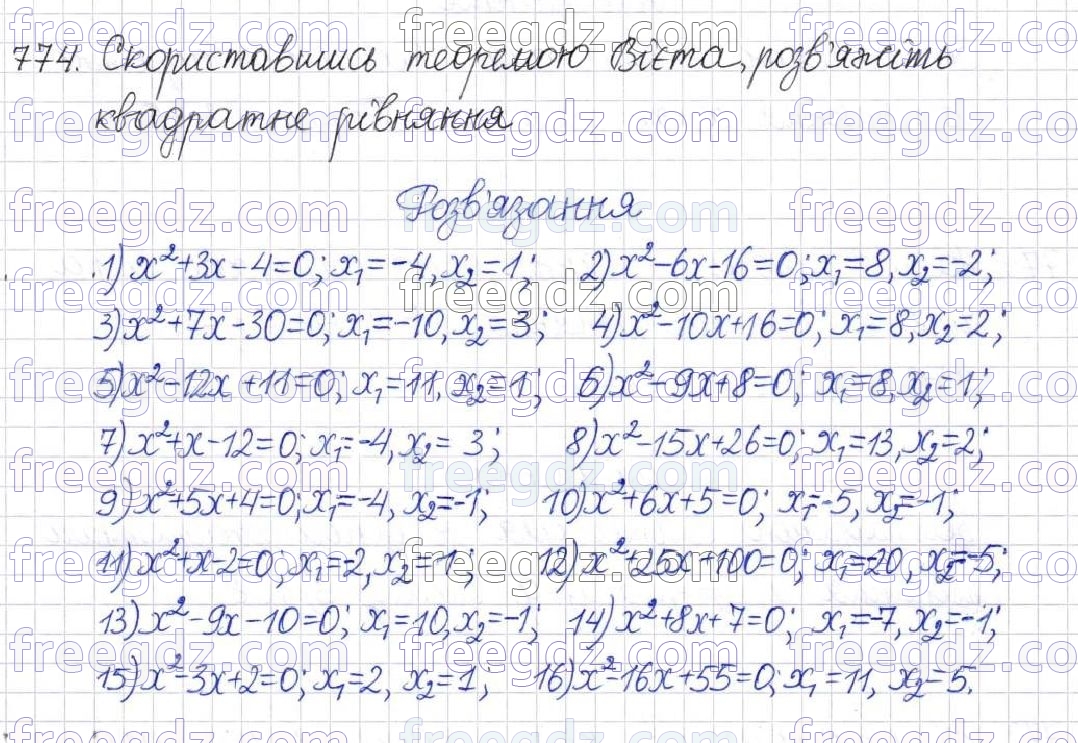 774. Скориставшись теоремою Вієта, розв'яжіть
квадратне рівняння
Розв'язання
1) x²+3x-4=0; x₁=-4, x₂=1; 2) x²-6x-16=0; x₁=8, x₂=-2;
3) x²+7x-30=0; x₁=-10, x₂=3; 4) x²-10x+16=0; x₁=8, x₂=2;
5) x²-12x+11=0; x₁=11, x₂=1; 6) x²-9x+8=0; x₁=8, x₂=1;
7) x²+x-12=0; x₁=-4, x₂=3; 8) x²-15x+26=0; x₁=13, x₂=2;
9) x²+5x+4=0; x₁=-4, x₂=-1; 10) x²+6x+5=0; x₁=-5, x₂=-1;
11) x²+x-2=0; x₁=-2, x₂=1; 12) x²+25x+100=0; x₁=-20, x₂=-5;
13) x²-9x-10=0; x₁=10, x₂=-1; 14) x²+8x+7=0; x₁=-7, x₂=-1;
15) x²-3x+2=0; x₁=2, x₂=1; 16) x²-16x+55=0; x₁=11, x₂=5.
freegdz.com